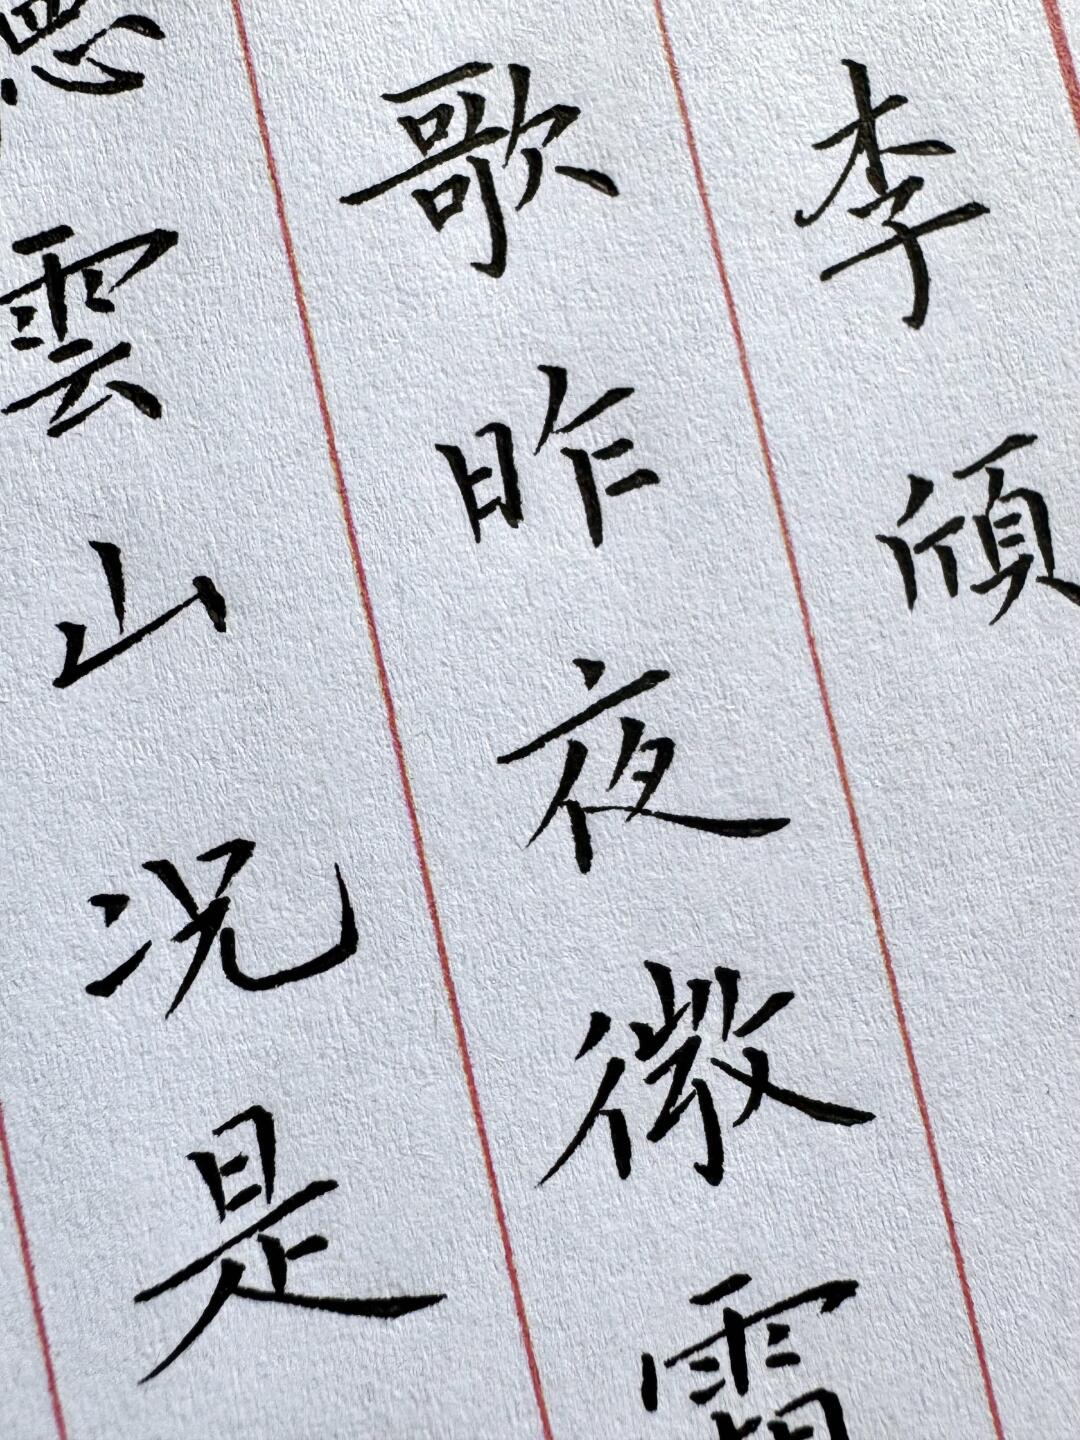 李頎
歌昨夜微霜
雲山況是